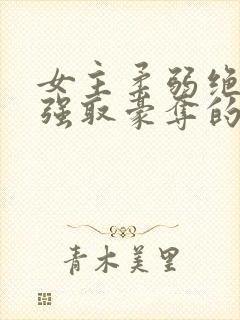 女主柔弱绝
强取豪夺的
青木美里